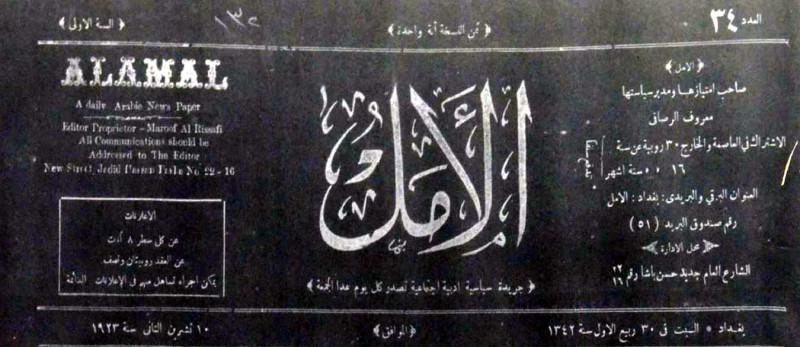 العدد ٣٤
﴿ ثمن النسخة آنة واحدة ﴾
﴿ السنة الاولى ﴾
١٣٤
﴿ الامل ﴾
صاحب امتيازها ومدير سياستها
معروف الرصافي
الاشتراك في العاصمة والخارج ٣٠ روبية عن سنة
١٦ ٠ ٠ ستة اشهر
العنوان البرقي والبريدي: بغداد: الامل
رقم صندوق البريد (٥١)
محل الادارة
الشارع العام جديد حسن باشا رقم ٢٢ ١٦
الأمل
﴿ جريدة سياسية ادبية اجتماعية تصدر كل يوم عدا الجمعة ﴾
ALAMAL
A daily Arabic News Paper
Editor Proprietor – Maroof Al Rissafi
All Communications should be
Addressed to The Editor
New Street, Jedid Hassan Pasha No 22 - 16
الاعلانات
عن كل سطر ٨ آنات
عن العقد روبيتان ونصف
يمكن اجراء تساهل مهم في الاعلانات الدائمة
بغداد * السبت في ٣٠ ربيع الاول سنة ١٣٤٢
﴿ الموافق ﴾
١٠ تشرين الثاني سنة ١٩٢٣